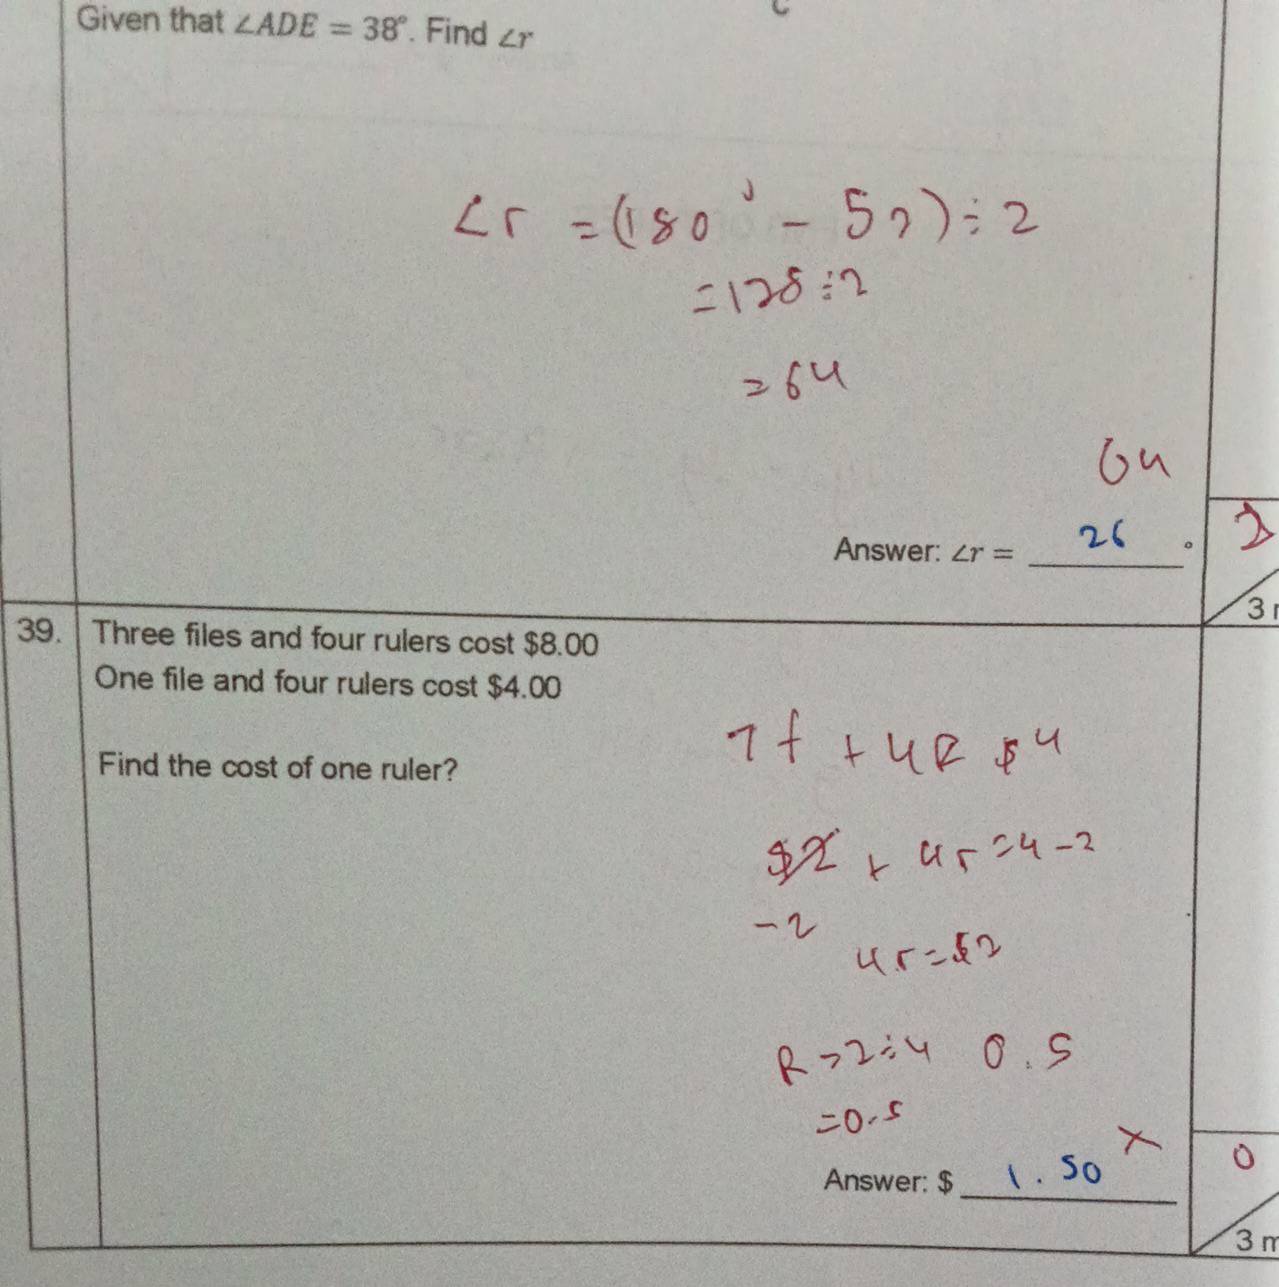 Given that ∠ADE = 38°. Find ∠r
∠r = (180° - 52) ÷ 2
= 128 ÷ 2
= 64
64
Answer: ∠r = 26 °
3
39. Three files and four rulers cost $8.00
One file and four rulers cost $4.00
Find the cost of one ruler?
1f + 4R $4
$2 + 4r = 4 - 2
- 2
4r = $2
R → 2 ÷ 4 0.5
= 0.5
Answer: $ 1.50 ×
0
3 m